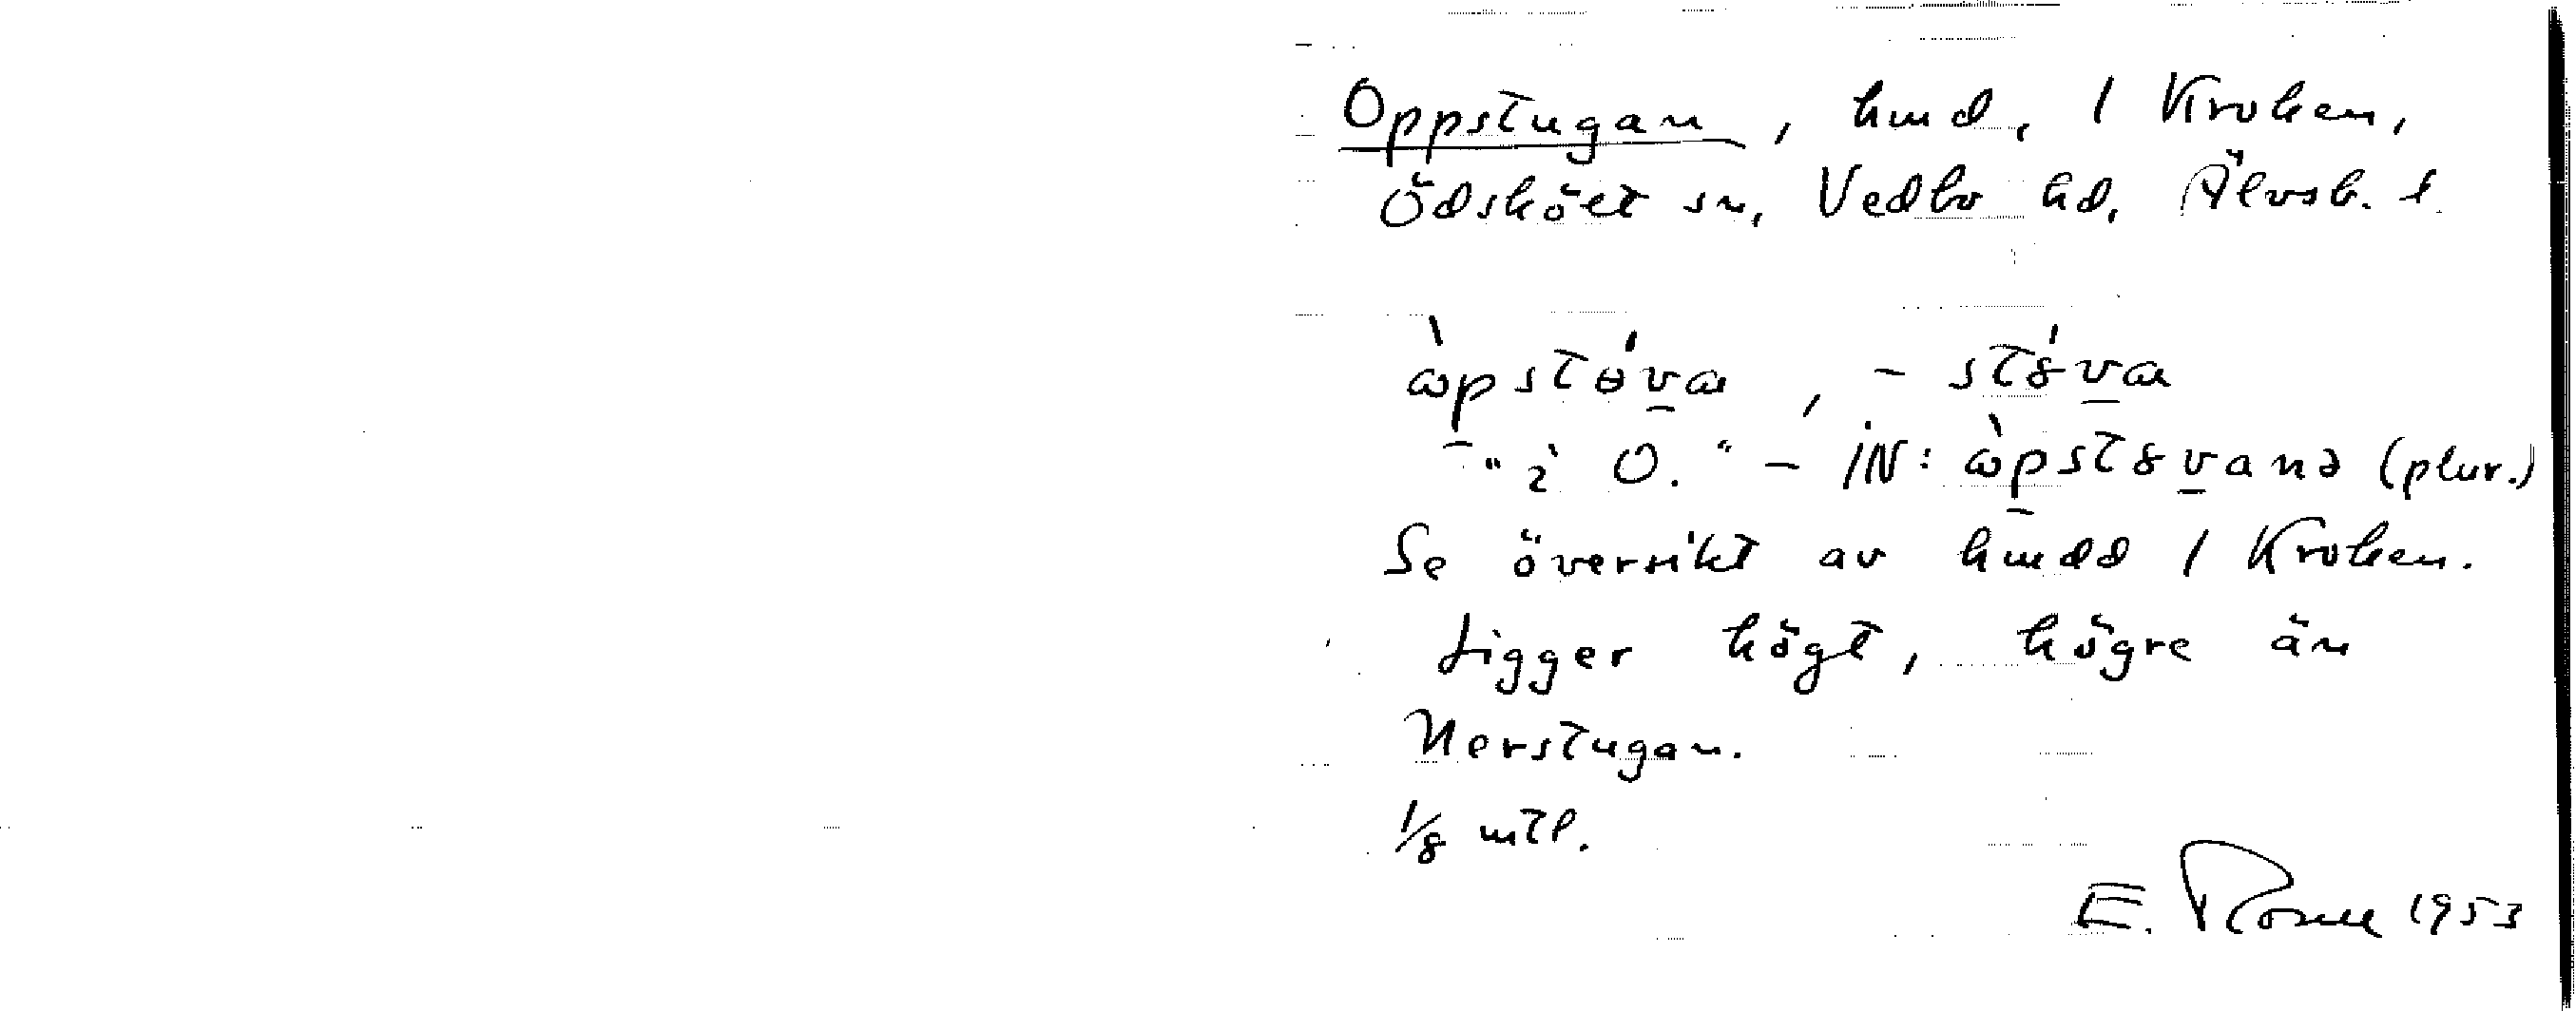 Oppstugan, hmd, 1 Kroken,
Ödsköt sn, Vedbo hd, Älvsb. l.
ὼpstѳ́va, – st8́va
"ì O." – iN: ὼpst8vanə (plur.)
Se översikt av hmdd 1 Kroken.
Ligger högt, högre än
Nerstugan.
1/8 mtl.
E. Rosell 1953